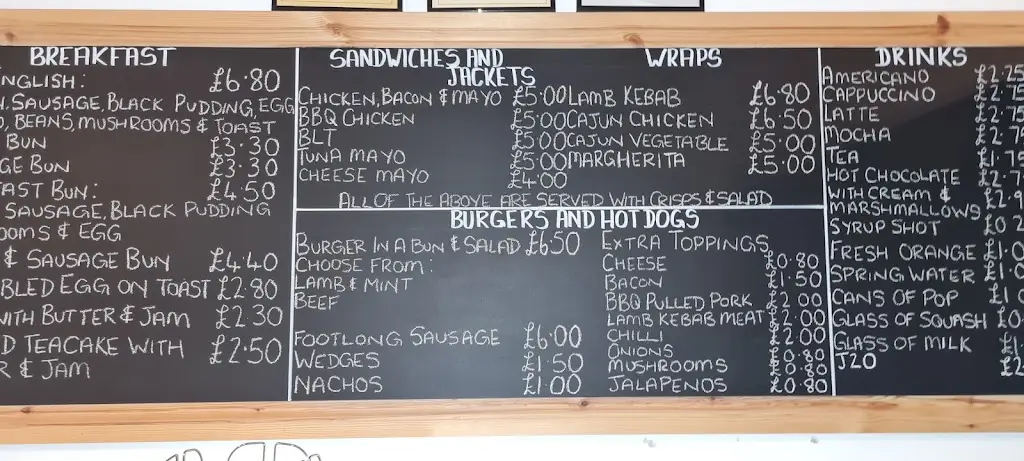 BREAKFAST
NGLISH: £6.80
SAUSAGE, BLACK PUDDING, EGG
BEANS, MUSHROOMS & TOAST
BUN £3.30
GE BUN £3.30
AST BUN: £4.50
SAUSAGE, BLACK PUDDING
OOMS & EGG
& SAUSAGE BUN £4.40
BLED EGG ON TOAST £2.80
WITH BUTTER & JAM £2.30
D TEACAKE WITH £2.50
R & JAM
SANDWICHES AND
JACKETS
CHICKEN, BACON & MAYO £5.00
BBQ CHICKEN £5.00
BLT £5.00
TUNA MAYO £5.00
CHEESE MAYO £4.00
WRAPS
LAMB KEBAB £6.80
CAJUN CHICKEN £6.50
CAJUN VEGETABLE £5.00
MARGHERITA £5.00
ALL OF THE ABOVE ARE SERVED WITH CRISPS & SALAD
BURGERS AND HOT DOGS
BURGER IN A BUN & SALAD £6.50
CHOOSE FROM:
LAMB & MINT
BEEF
FOOTLONG SAUSAGE £6.00
WEDGES £1.50
NACHOS £1.00
EXTRA TOPPINGS
CHEESE £0.80
BACON £1.50
BBQ PULLED PORK £2.00
LAMB KEBAB MEAT £2.00
CHILLI £2.00
ONIONS £0.80
MUSHROOMS £0.80
JALAPENOS £0.80
DRINKS
AMERICANO £2.25
CAPPUCCINO £2.75
LATTE £2.75
MOCHA £2.7
TEA £1.75
HOT CHOCOLATE £2.7
WITH CREAM & £2.9
MARSHMALLOWS
SYRUP SHOT £0.2
FRESH ORANGE £1.0
SPRING WATER £1.0
CANS OF POP £1.0
GLASS OF SQUASH £0.
GLASS OF MILK £1.
J2O £2